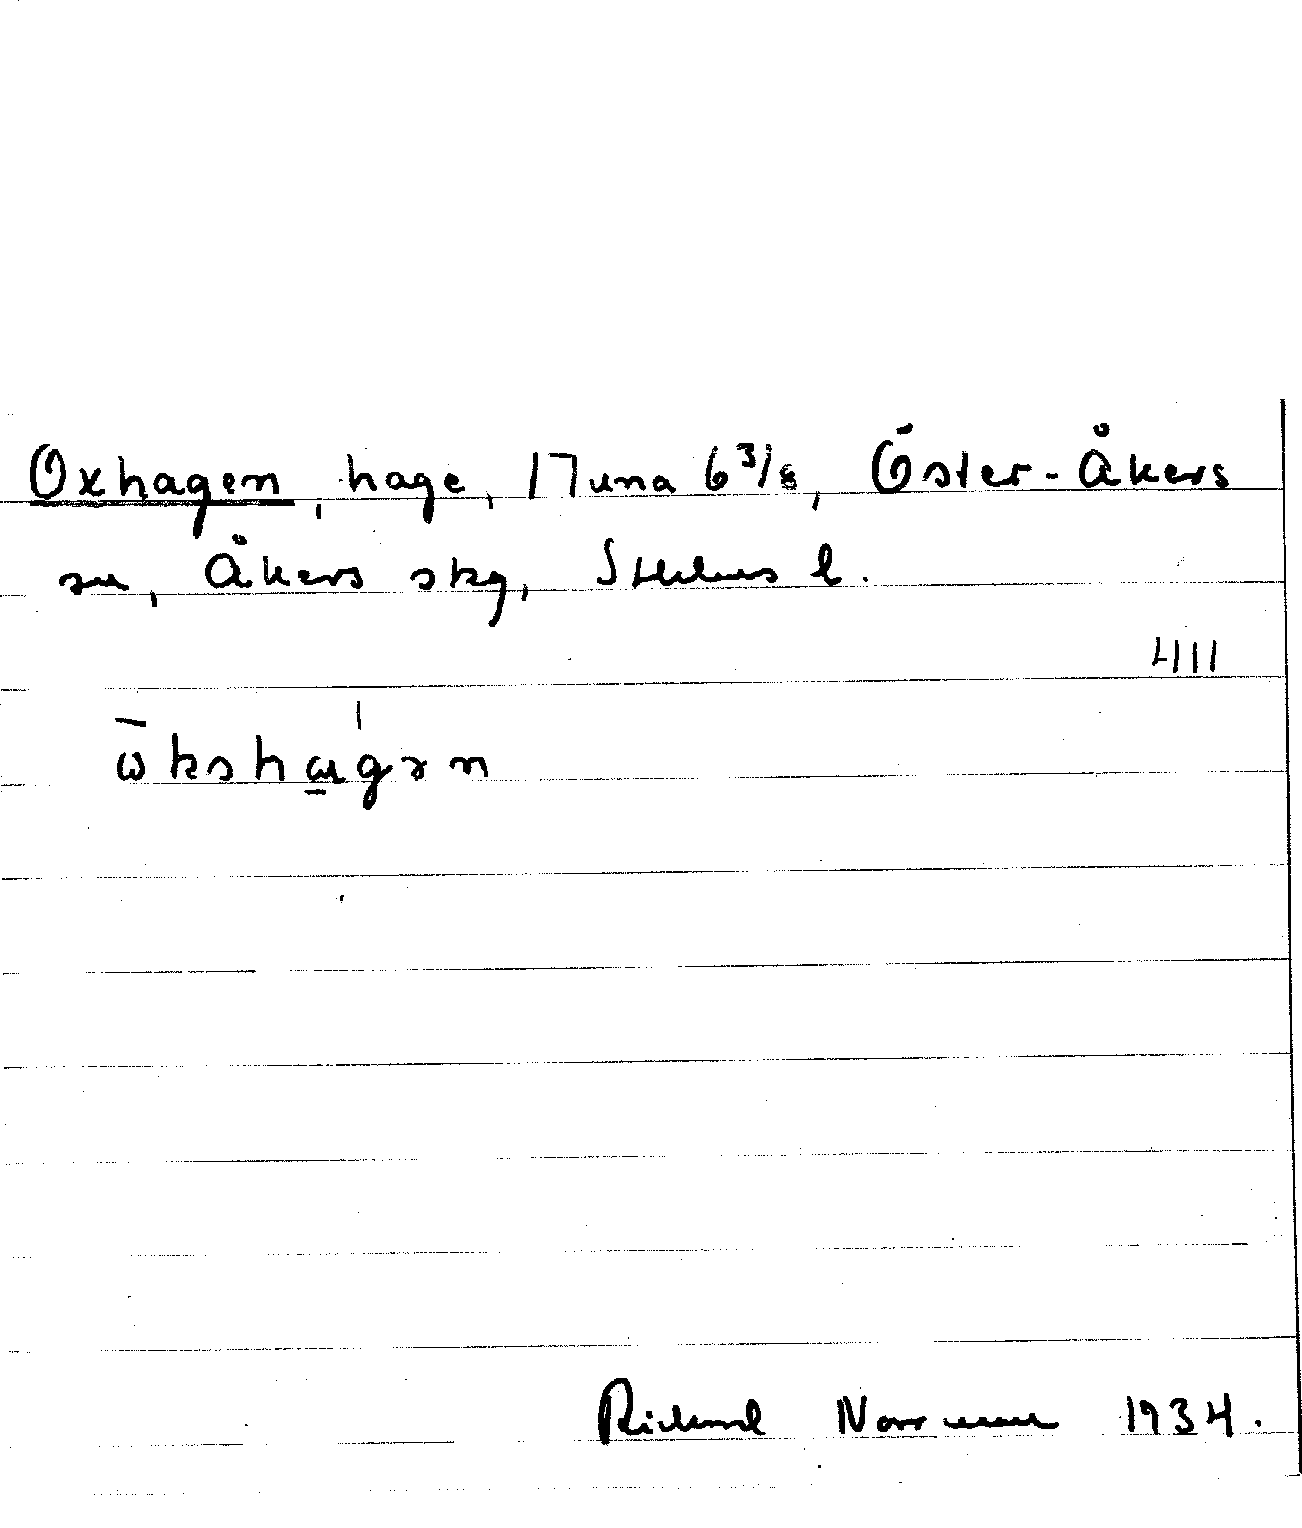 Oxhagen, hage, 17una 6 3/8, Öster-Åkers
sn, Åkers skg, Sthlms l.
411
Rickard Norrman 1934.